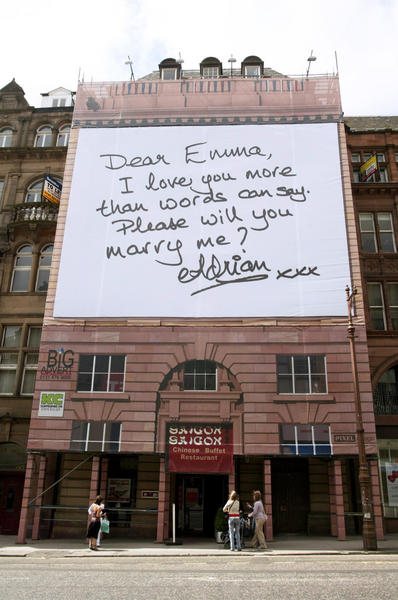 Dear Emma,
I love you more
than words can say.
Please will you
marry me?
Adrian xxx
BIG
ADVERT
SAIGON
SAIGON
Chinese Buffet
Restaurant
PIXEL